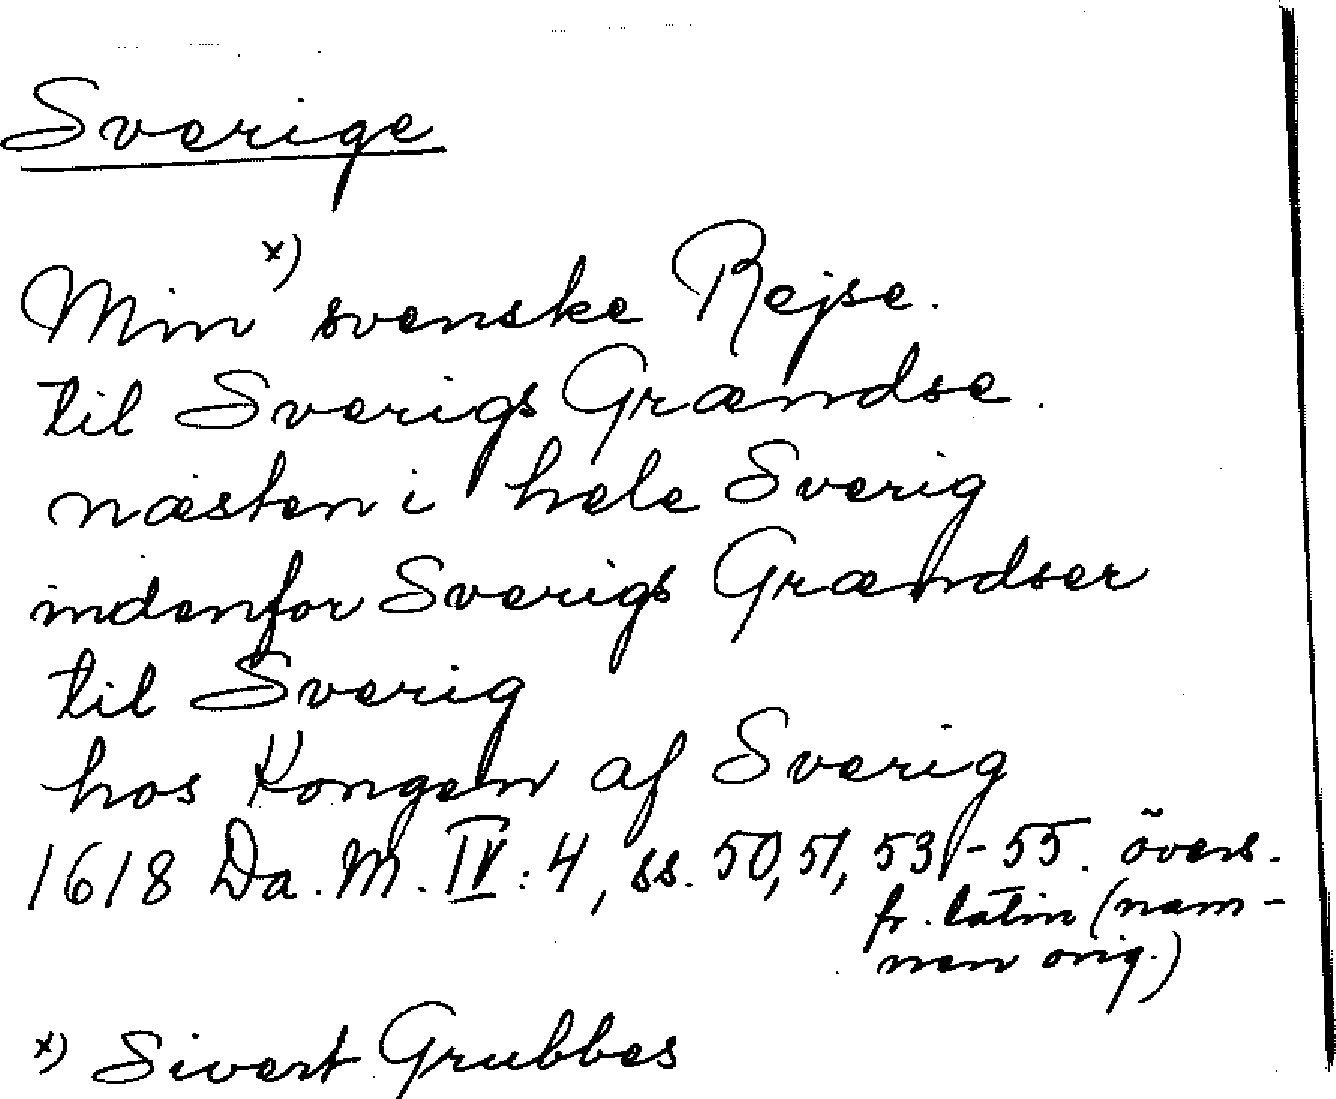 Sverige
Min x) svenske Rejse.
til Sverigs Grændse.
næsten i hele Sverig
indenfor Sverigs Grændser
til Sverig
hos Kongen af Sverig
1618 Da. M. IV:4, ss. 50, 51, 53-55. övers.
fr. latin (nam-
nen orig.)
x) Sivert Grubbes